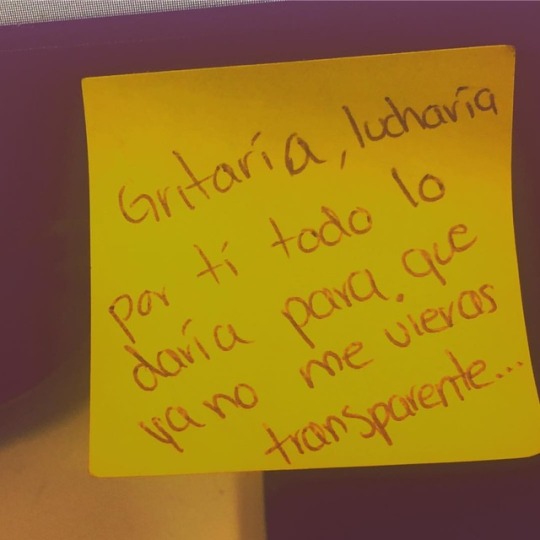 Gritaría, lucharía
por tí todo lo
daría para que
ya no me vieras
transparente...